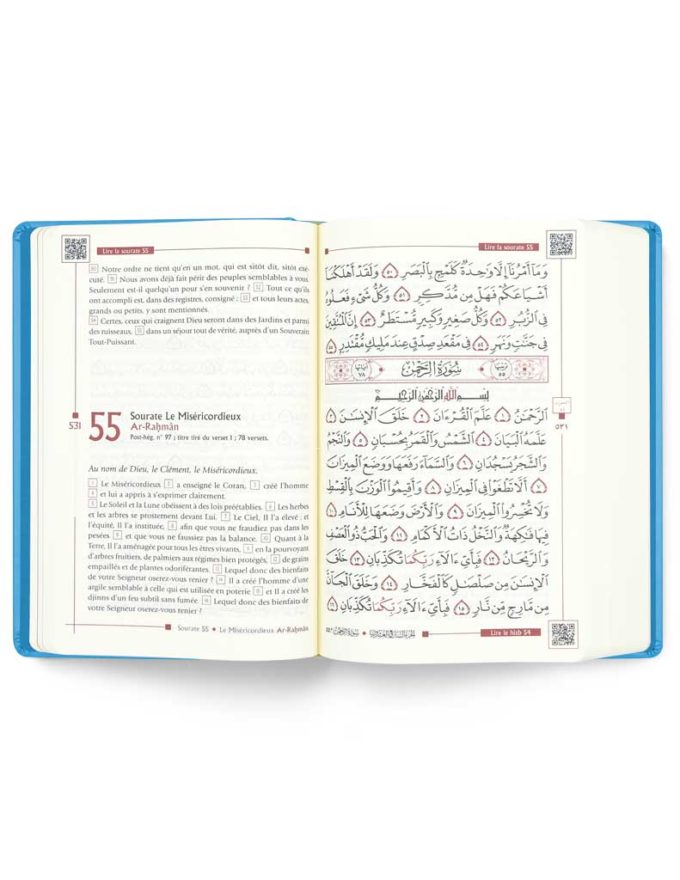 Lire la sourate 55
50 Notre ordre ne tient qu'en un mot, qui est sitôt dit, sitôt exé-
cuté. 51 Nous avons déjà fait périr des peuples semblables à vous.
Seulement est-il quelqu'un pour s'en souvenir ? 52 Tout ce qu'ils
ont accompli est, dans des registres, consigné ; 53 et tous leurs actes,
grands ou petits, y sont mentionnés.
54 Certes, ceux qui craignent Dieu seront dans des Jardins et parmi
des ruisseaux, 55 dans un séjour tout de vérité, auprès d'un Souverain
Tout-Puissant.
531
55
Sourate Le Miséricordieux
Ar-Raḥmân
Post-hég. n° 97 ; titre tiré du verset 1 ; 78 versets.
Au nom de Dieu, le Clément, le Miséricordieux.
1 Le Miséricordieux 2 a enseigné le Coran, 3 créé l'homme
4 et lui a appris à s'exprimer clairement.
5 Le Soleil et la Lune obéissent à des lois préétablies. 6 Les herbes
et les arbres se prosternent devant Lui. 7 Le Ciel, Il l'a élevé ; et
l'équité, Il l'a instituée, 8 afin que vous ne fraudiez pas dans les
pesées 9 et que vous ne faussiez pas la balance. 10 Quant à la
Terre, Il l'a aménagée pour tous les êtres vivants, 11 en la pourvoyant
d'arbres fruitiers, de palmiers aux régimes bien protégés, 12 de grains
empaillés et de plantes odoriférantes. 13 Lequel donc des bienfaits
de votre Seigneur oserez-vous renier ? 14 Il a créé l'homme d'une
argile semblable à celle qui est utilisée en poterie 15 et Il a créé les
djinns d'un feu subtil sans fumée. 16 Lequel donc des bienfaits de
votre Seigneur oserez-vous renier ?
Sourate 55 • Le Miséricordieux Ar-Raḥmân
Lire la sourate 55
وَمَآ أَمْرُنَآ إِلَّا وَٰحِدَةٌ كَلَمْحٍۭ بِٱلْبَصَرِ ٥٠ وَلَقَدْ أَهْلَكْنَآ
أَشْيَاعَكُمْ فَهَلْ مِن مُّدَّكِرٍ ٥١ وَكُلُّ شَىْءٍ فَعَلُوهُ
فِى ٱلزُّبُرِ ٥٢ وَكُلُّ صَغِيرٍ وَكَبِيرٍ مُّسْتَطَرٌ ٥٣ إِنَّ ٱلْمُتَّقِينَ
فِى جَنَّٰتٍ وَنَهَرٍ ٥٤ فِى مَقْعَدِ صِدْقٍ عِندَ مَلِيكٍ مُّقْتَدِرٍۭ ٥٥
سُورَةُ الرَّحْمٰن
بِسْمِ ٱللَّهِ ٱلرَّحْمَٰنِ ٱلرَّحِيمِ
ٱلرَّحْمَٰنُ ١ عَلَّمَ ٱلْقُرْءَانَ ٢ خَلَقَ ٱلْإِنسَٰنَ ٣
٥٣١
عَلَّمَهُ ٱلْبَيَانَ ٤ ٱلشَّمْسُ وَٱلْقَمَرُ بِحُسْبَانٍ ٥ وَٱلنَّجْمُ
وَٱلشَّجَرُ يَسْجُدَانِ ٦ وَٱلسَّمَآءَ رَفَعَهَا وَوَضَعَ ٱلْمِيزَانَ
٧ أَلَّا تَطْغَوْا۟ فِى ٱلْمِيزَانِ ٨ وَأَقِيمُوا۟ ٱلْوَزْنَ بِٱلْقِسْطِ
وَلَا تُخْسِرُوا۟ ٱلْمِيزَانَ ٩ وَٱلْأَرْضَ وَضَعَهَا لِلْأَنَامِ ١٠
فِيهَا فَٰكِهَةٌ وَٱلنَّخْلُ ذَاتُ ٱلْأَكْمَامِ ١١ وَٱلْحَبُّ ذُو ٱلْعَصْفِ
وَٱلرَّيْحَانُ ١٢ فَبِأَىِّ ءَالَآءِ رَبِّكُمَا تُكَذِّبَانِ ١٣ خَلَقَ
ٱلْإِنسَٰنَ مِن صَلْصَٰلٍ كَٱلْفَخَّارِ ١٤ وَخَلَقَ ٱلْجَآنَّ
مِن مَّارِجٍ مِّن نَّارٍ ١٥ فَبِأَىِّ ءَالَآءِ رَبِّكُمَا تُكَذِّبَانِ ١٦
Lire le hizb 54